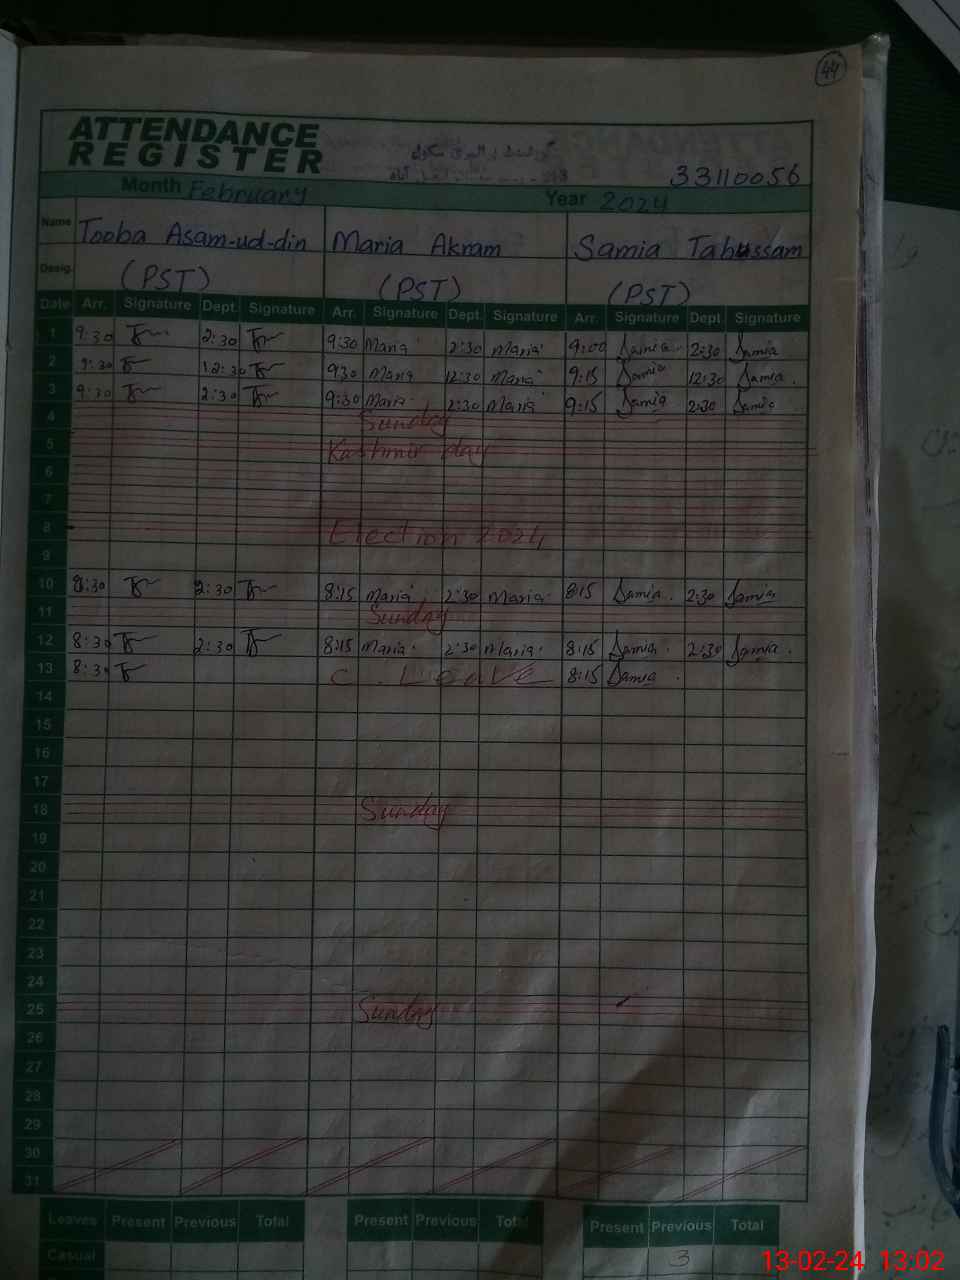 44
ATTENDANCE
REGISTER
گورنمنٹ پرائمری سکول
33110056
Month February Year 2024
Name Tooba Asam-ud-din Maria Akram Samia Tabussam
Desig. (PST) (PST) (PST)
Date Arr. Signature Dept. Signature Arr. Signature Dept. Signature Arr. Signature Dept. Signature
1 9:30 2:30 9:30 Maria 2:30 Maria 9:00 Samia 2:30 Samia
2 9:30 12:30 930 Maria 12:30 Maria 9:15 Samia 12:30 Samia.
3 9:30 2:30 9:30 Maria 2:30 Maria 9:15 Samia 2:30 Samia
4 Sunday
5 Kashmir day
6
7
8 Election 2024
9
10 8:30 2:30 8:15 Maria 2:30 Maria 8:15 Samia. 2:30 Samia
11 Sunday
12 8:30 2:30 8:15 Maria 2:30 Maria 8:15 Samia. 2:30 Samia.
13 8:30 C. Leave 8:15 Samia.
14
15
16
17
18 Sunday
19
20
21
22
23
24
25 Sunday
26
27
28
29
30
31
Leaves Present Previous Total Present Previous Total Present Previous Total
Casual 3
13-02-24 13:02